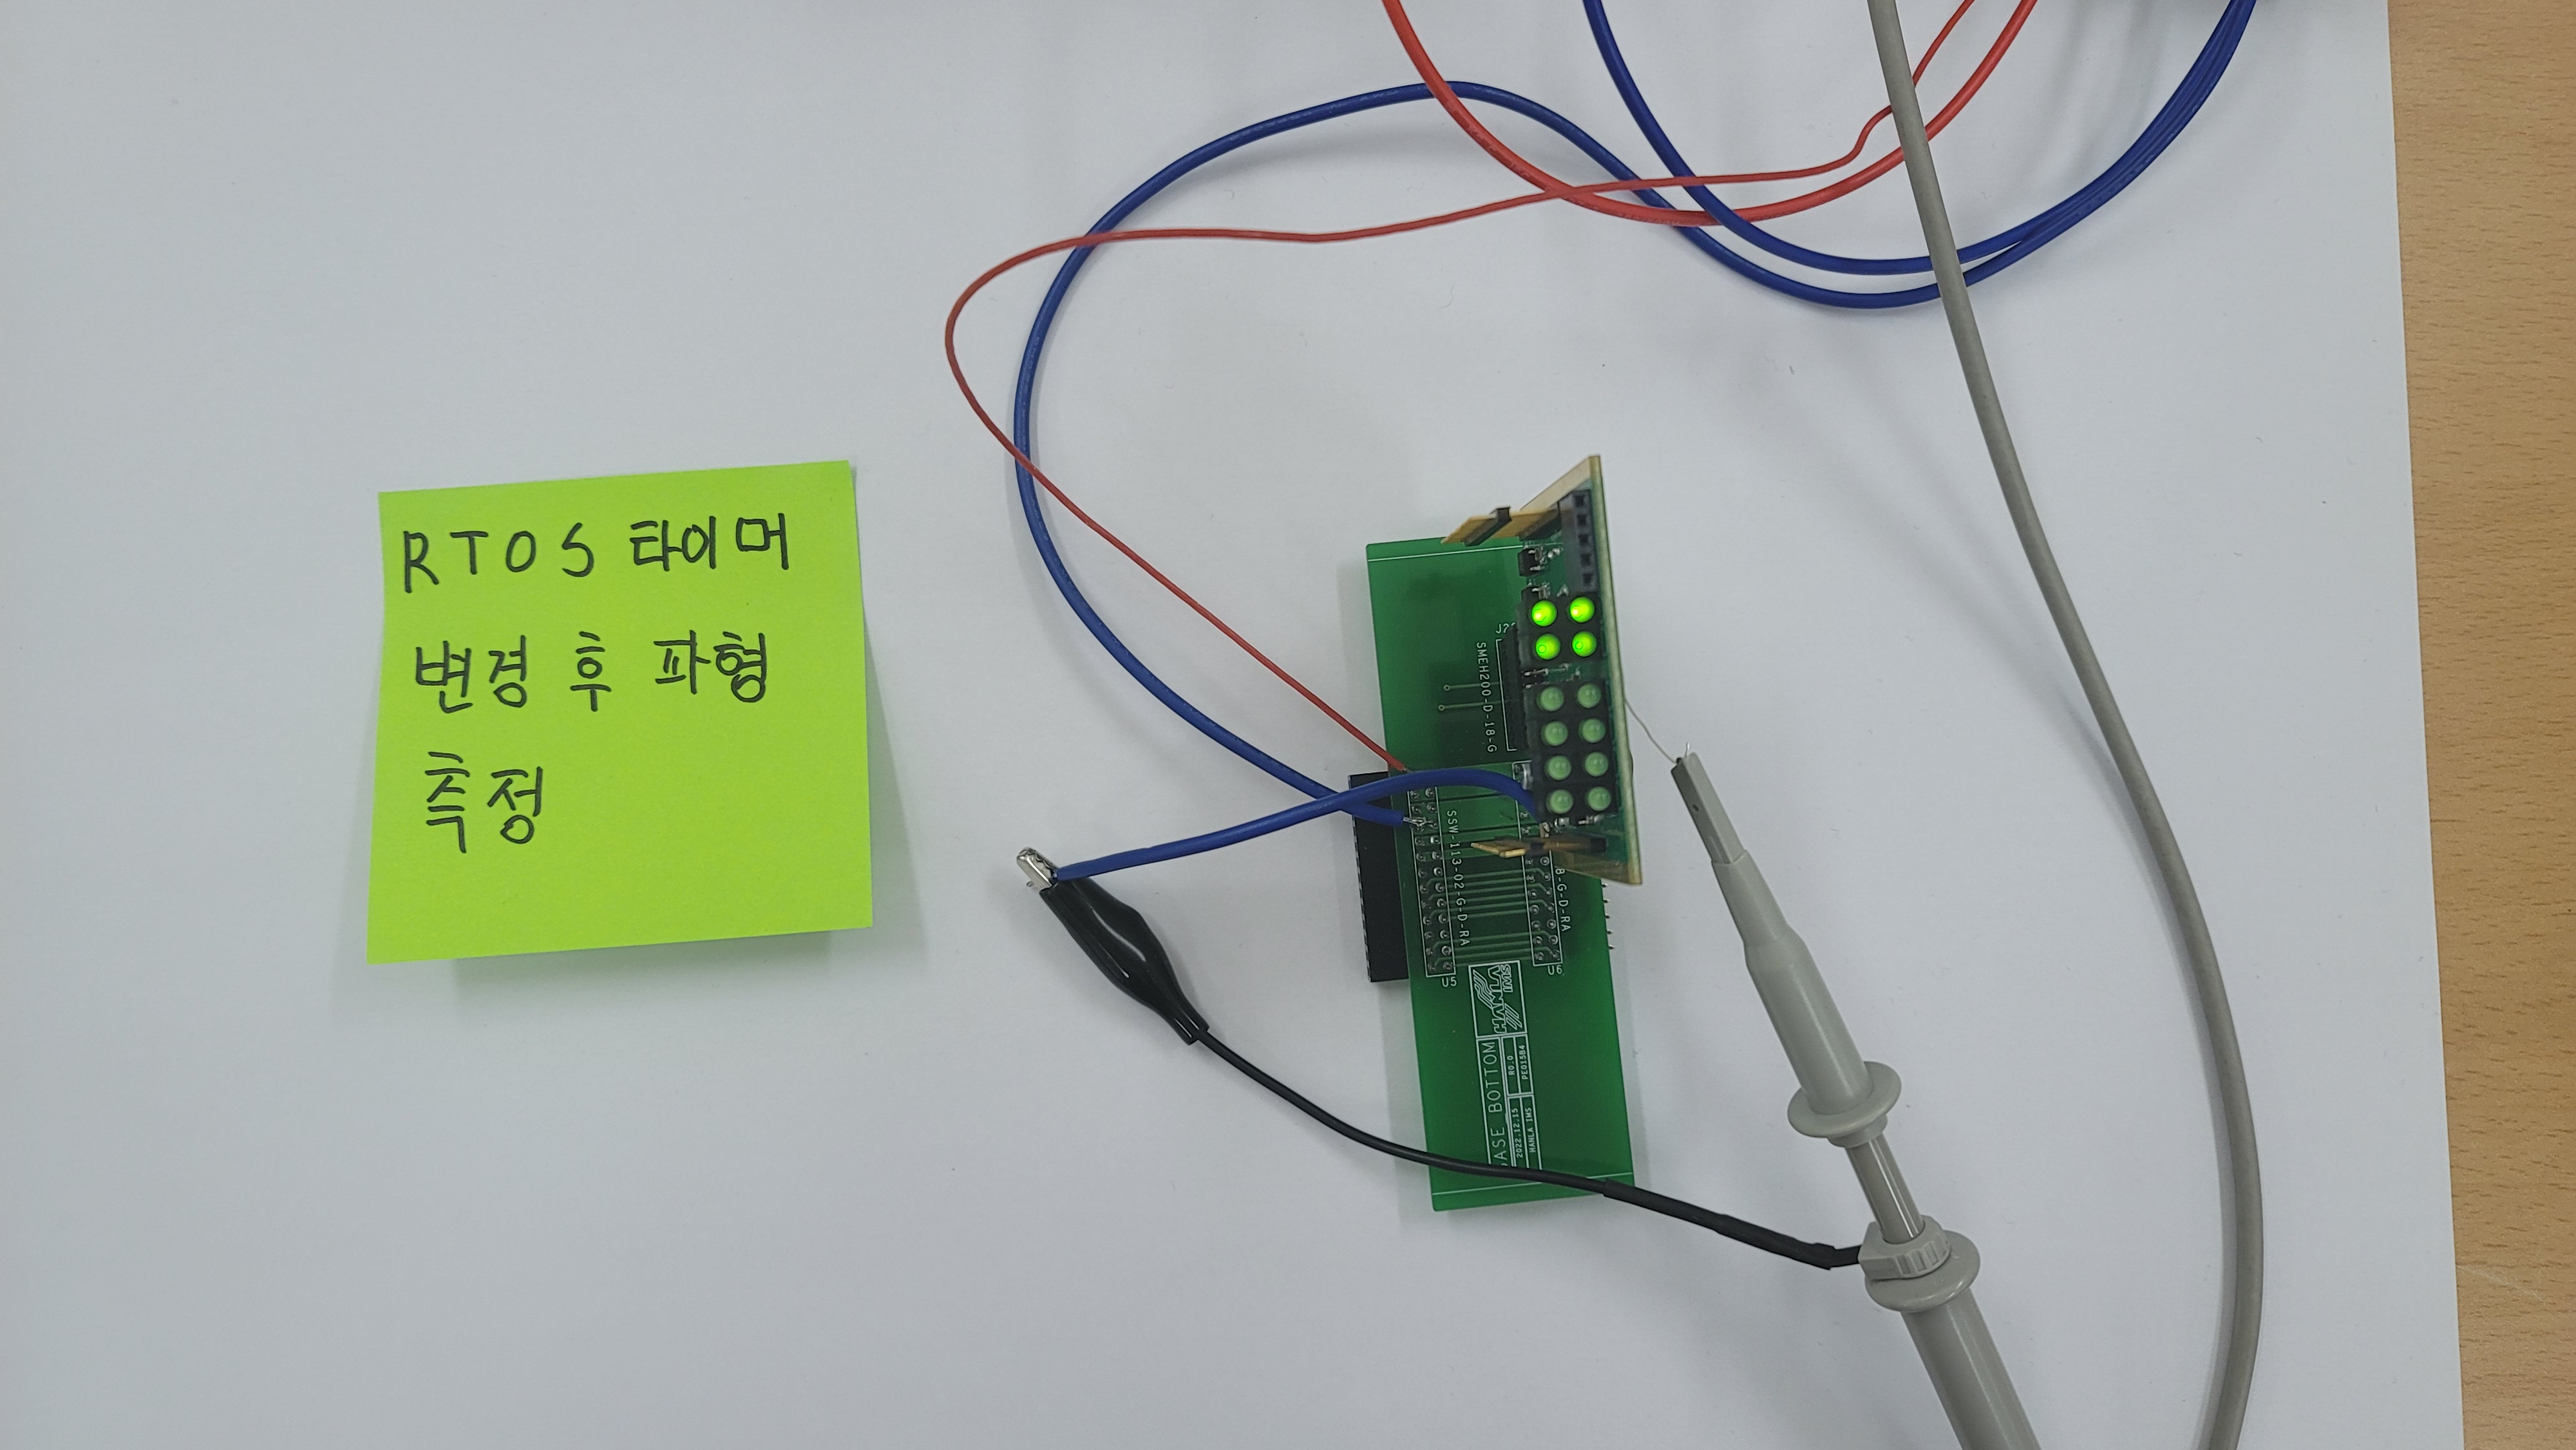 RTOS 타이머
변경 후 파형
측정
SMEH200-D-18-G
SSW-113-02-G-D-RA
8-G-D-RA
U5
U6
HANLA
IMS
BASE BOTTOM
R0.0
PE01584
2022.12.15
HANLA IMS